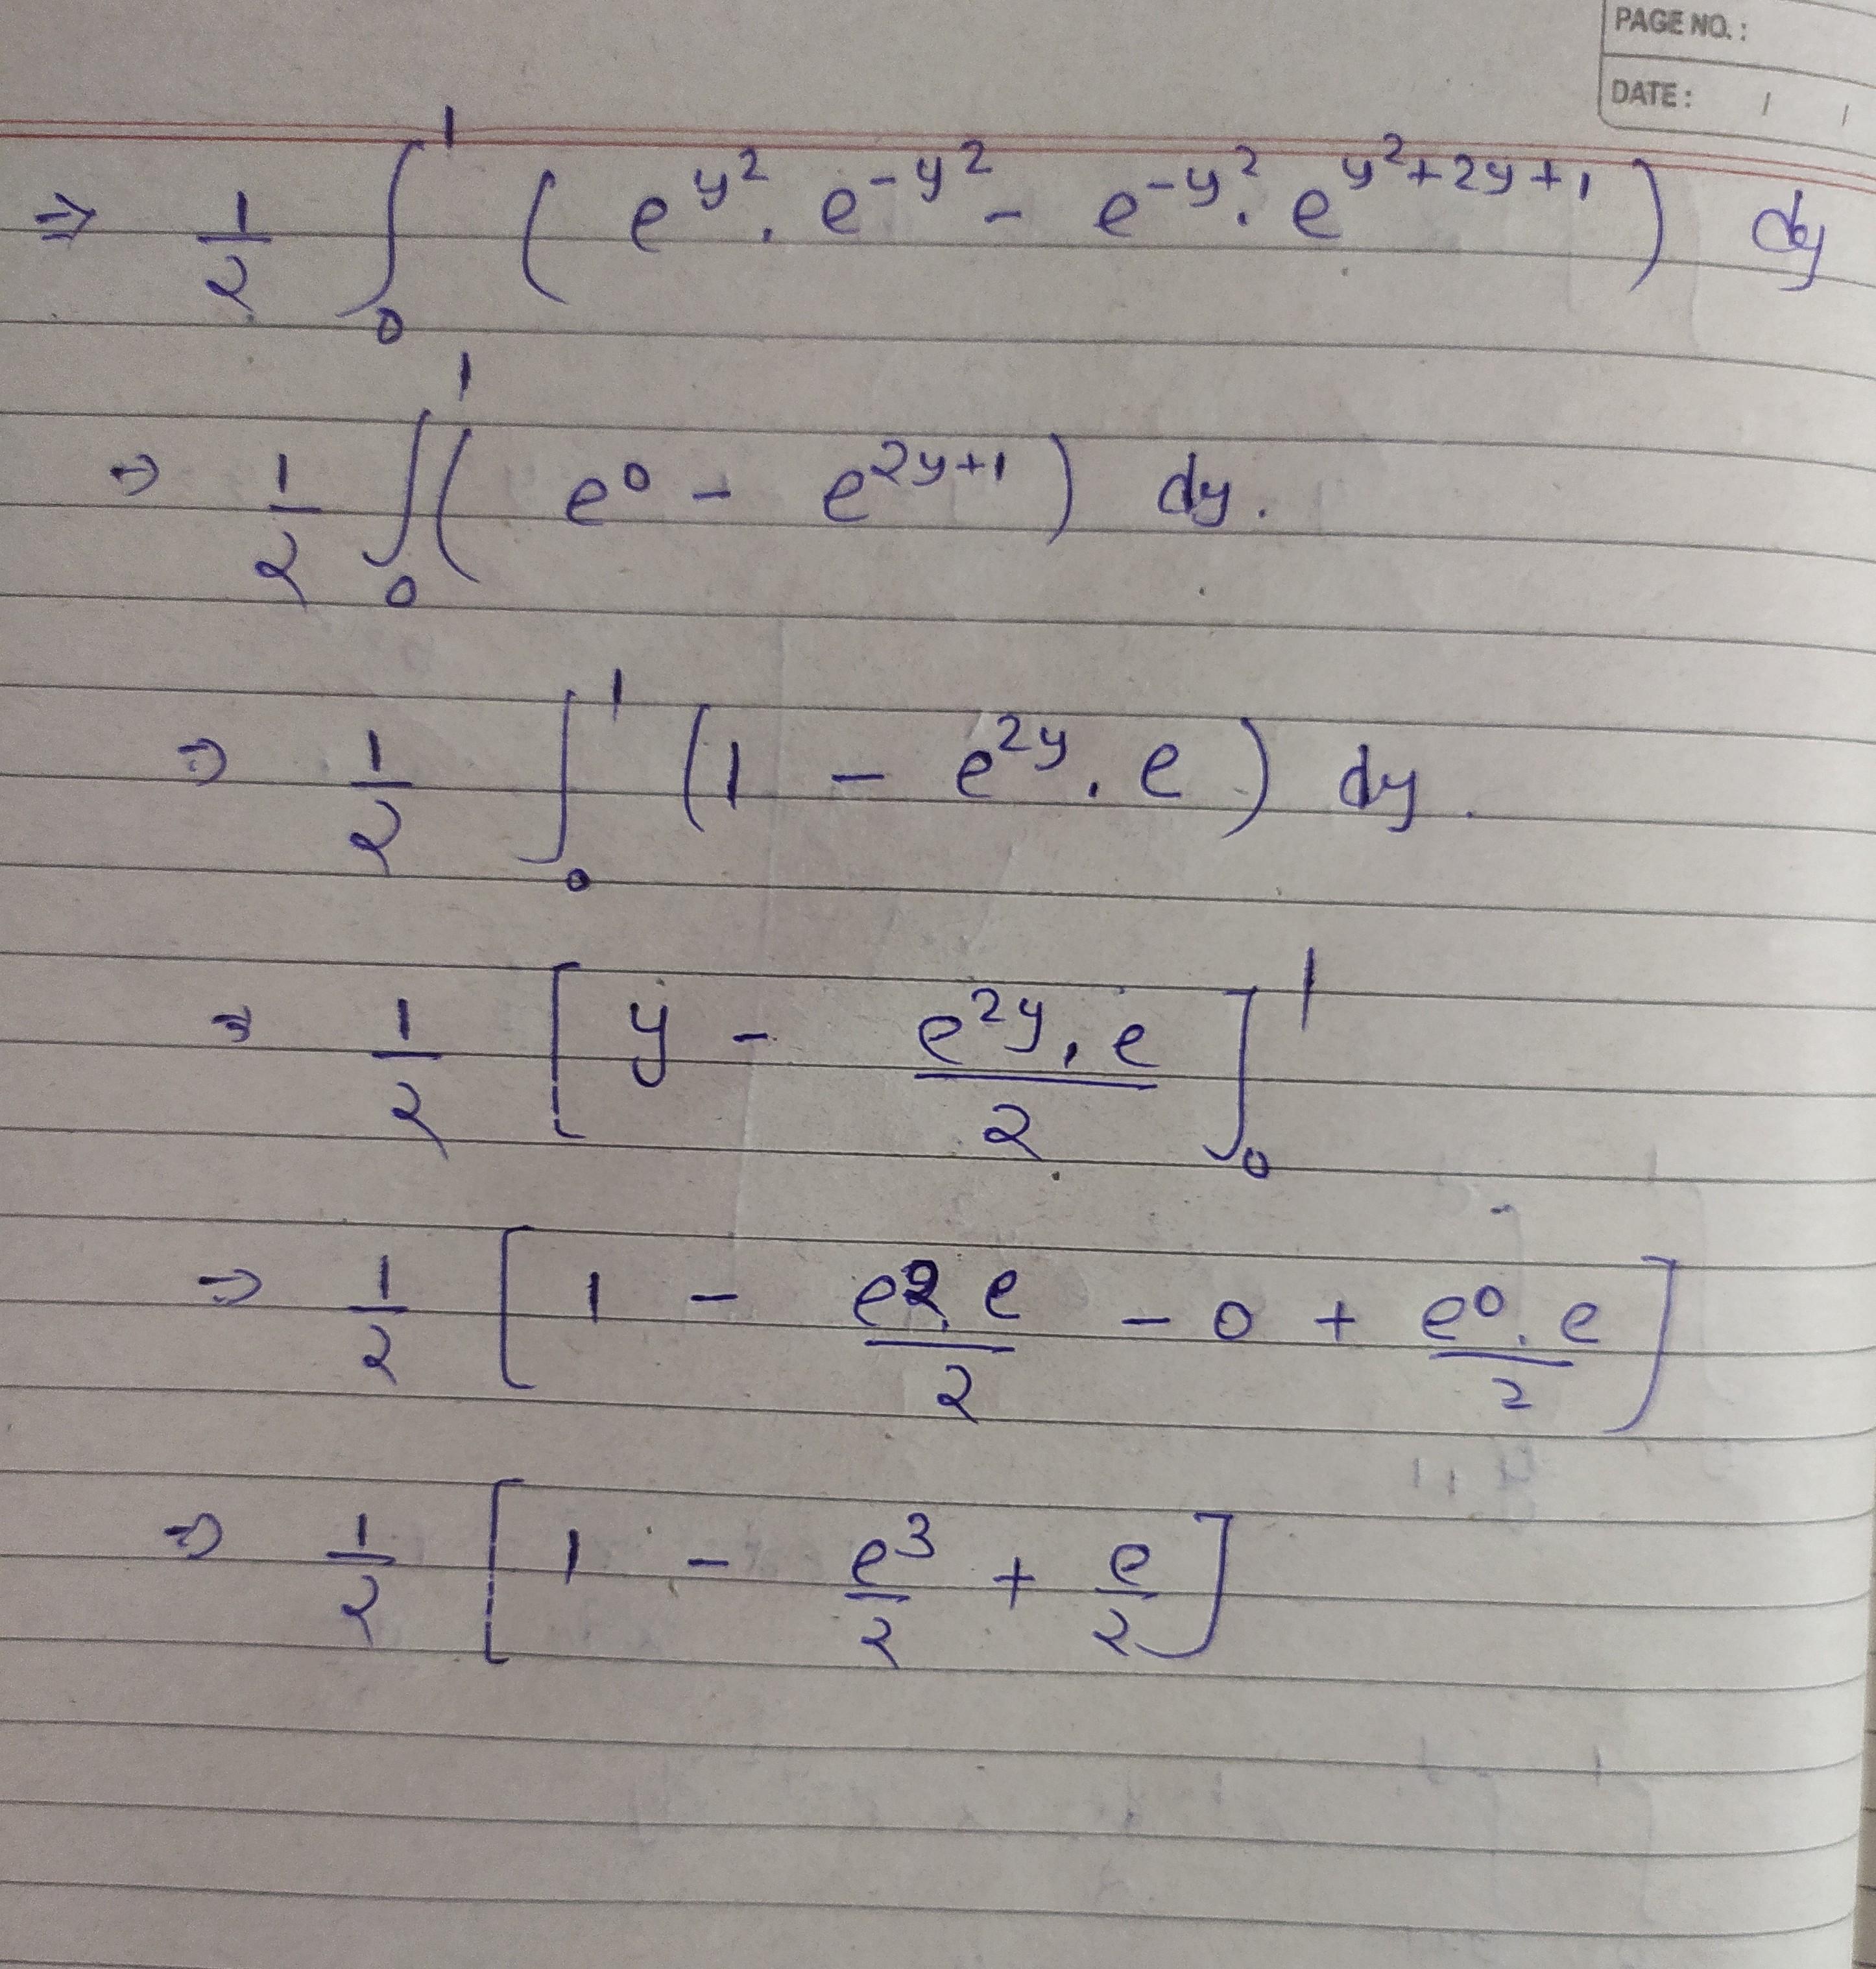 PAGE NO. :
DATE : / /
⇒ 1/2 ∫₀¹ ( e^{y²} . e^{-y²} - e^{-y²} . e^{y²+2y+1} ) dy
⇒ 1/2 ∫₀¹ ( e⁰ - e^{2y+1} ) dy.
⇒ 1/2 ∫₀¹ (1 - e^{2y} . e) dy.
⇒ 1/2 [ y - (e^{2y} . e)/2 ]₀¹
⇒ 1/2 [ 1 - (e² . e)/2 - 0 + (e⁰ . e)/2 ]
⇒ 1/2 [ 1 - e³/2 + e/2 ]